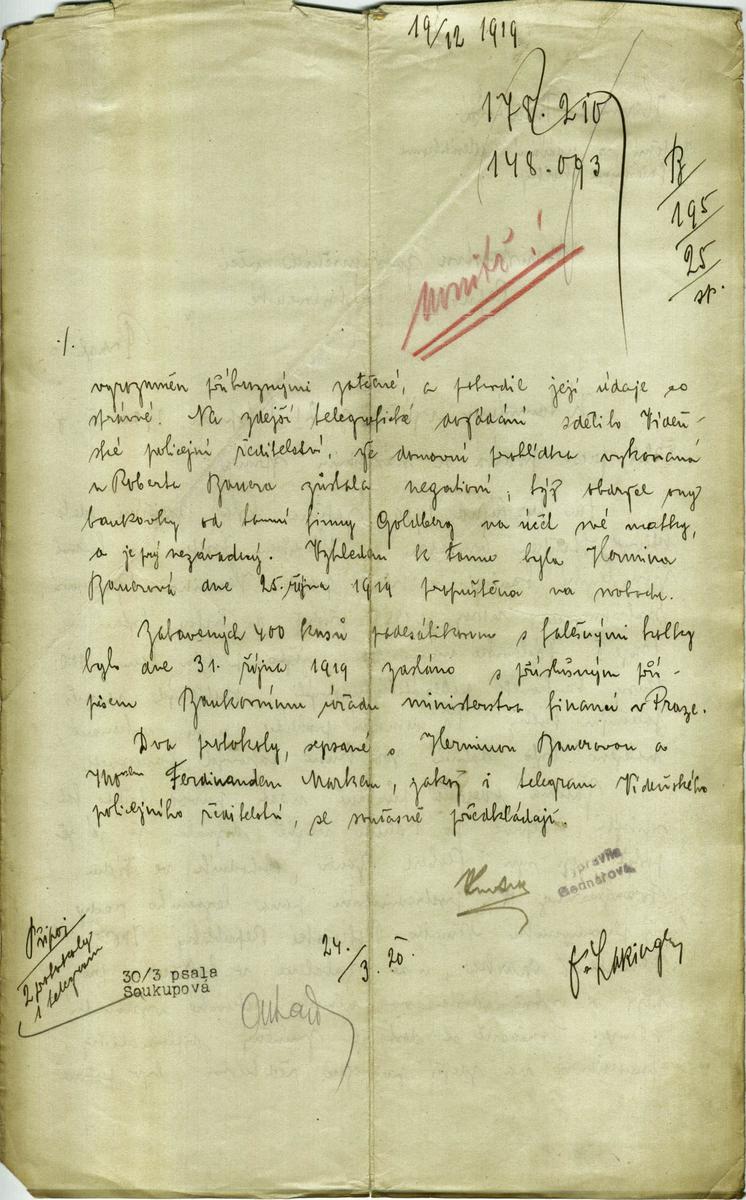 19/12 1919
178.210
148.093
195
25
monitř!
./.
vyrozuměn příbuznými zatčené, a potvrdil její údaje co
správné. Na zdejší telegrafické dožádání sdělilo Vídeň-
ské policejní ředitelství, že domovní prohlídka vykonaná
u Roberta Bauera zůstala negativní, týž obdržel ony
bankovky od tamní firmy Goldberg na účet své matky,
a je prý nezávadný. Vzhledem k tomu byla Hermina
Bauerová dne 25. října 1919 propuštěna na svobodu.
Zabavených 400 kusů padesátikorun s falešnými kolky
bylo dne 31. října 1919 zasláno s příslušným pří-
pisem Bankovnímu úřadu ministerstva financí v Praze.
Dva protokoly, sepsané s Herminou Bauerovou a
Ferdinandem Markem, jakož i telegram Vídeňského
policejního ředitelství, se současně předkládají.
vypravila
Bednářová
Připoj
2 protokoly
1 telegram
30/3 psala
Soukupová
24./3. 20.